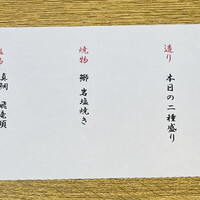 造り 本日の二種盛り
焼物 鰤岩塩焼き
真鯛 飛竜頭